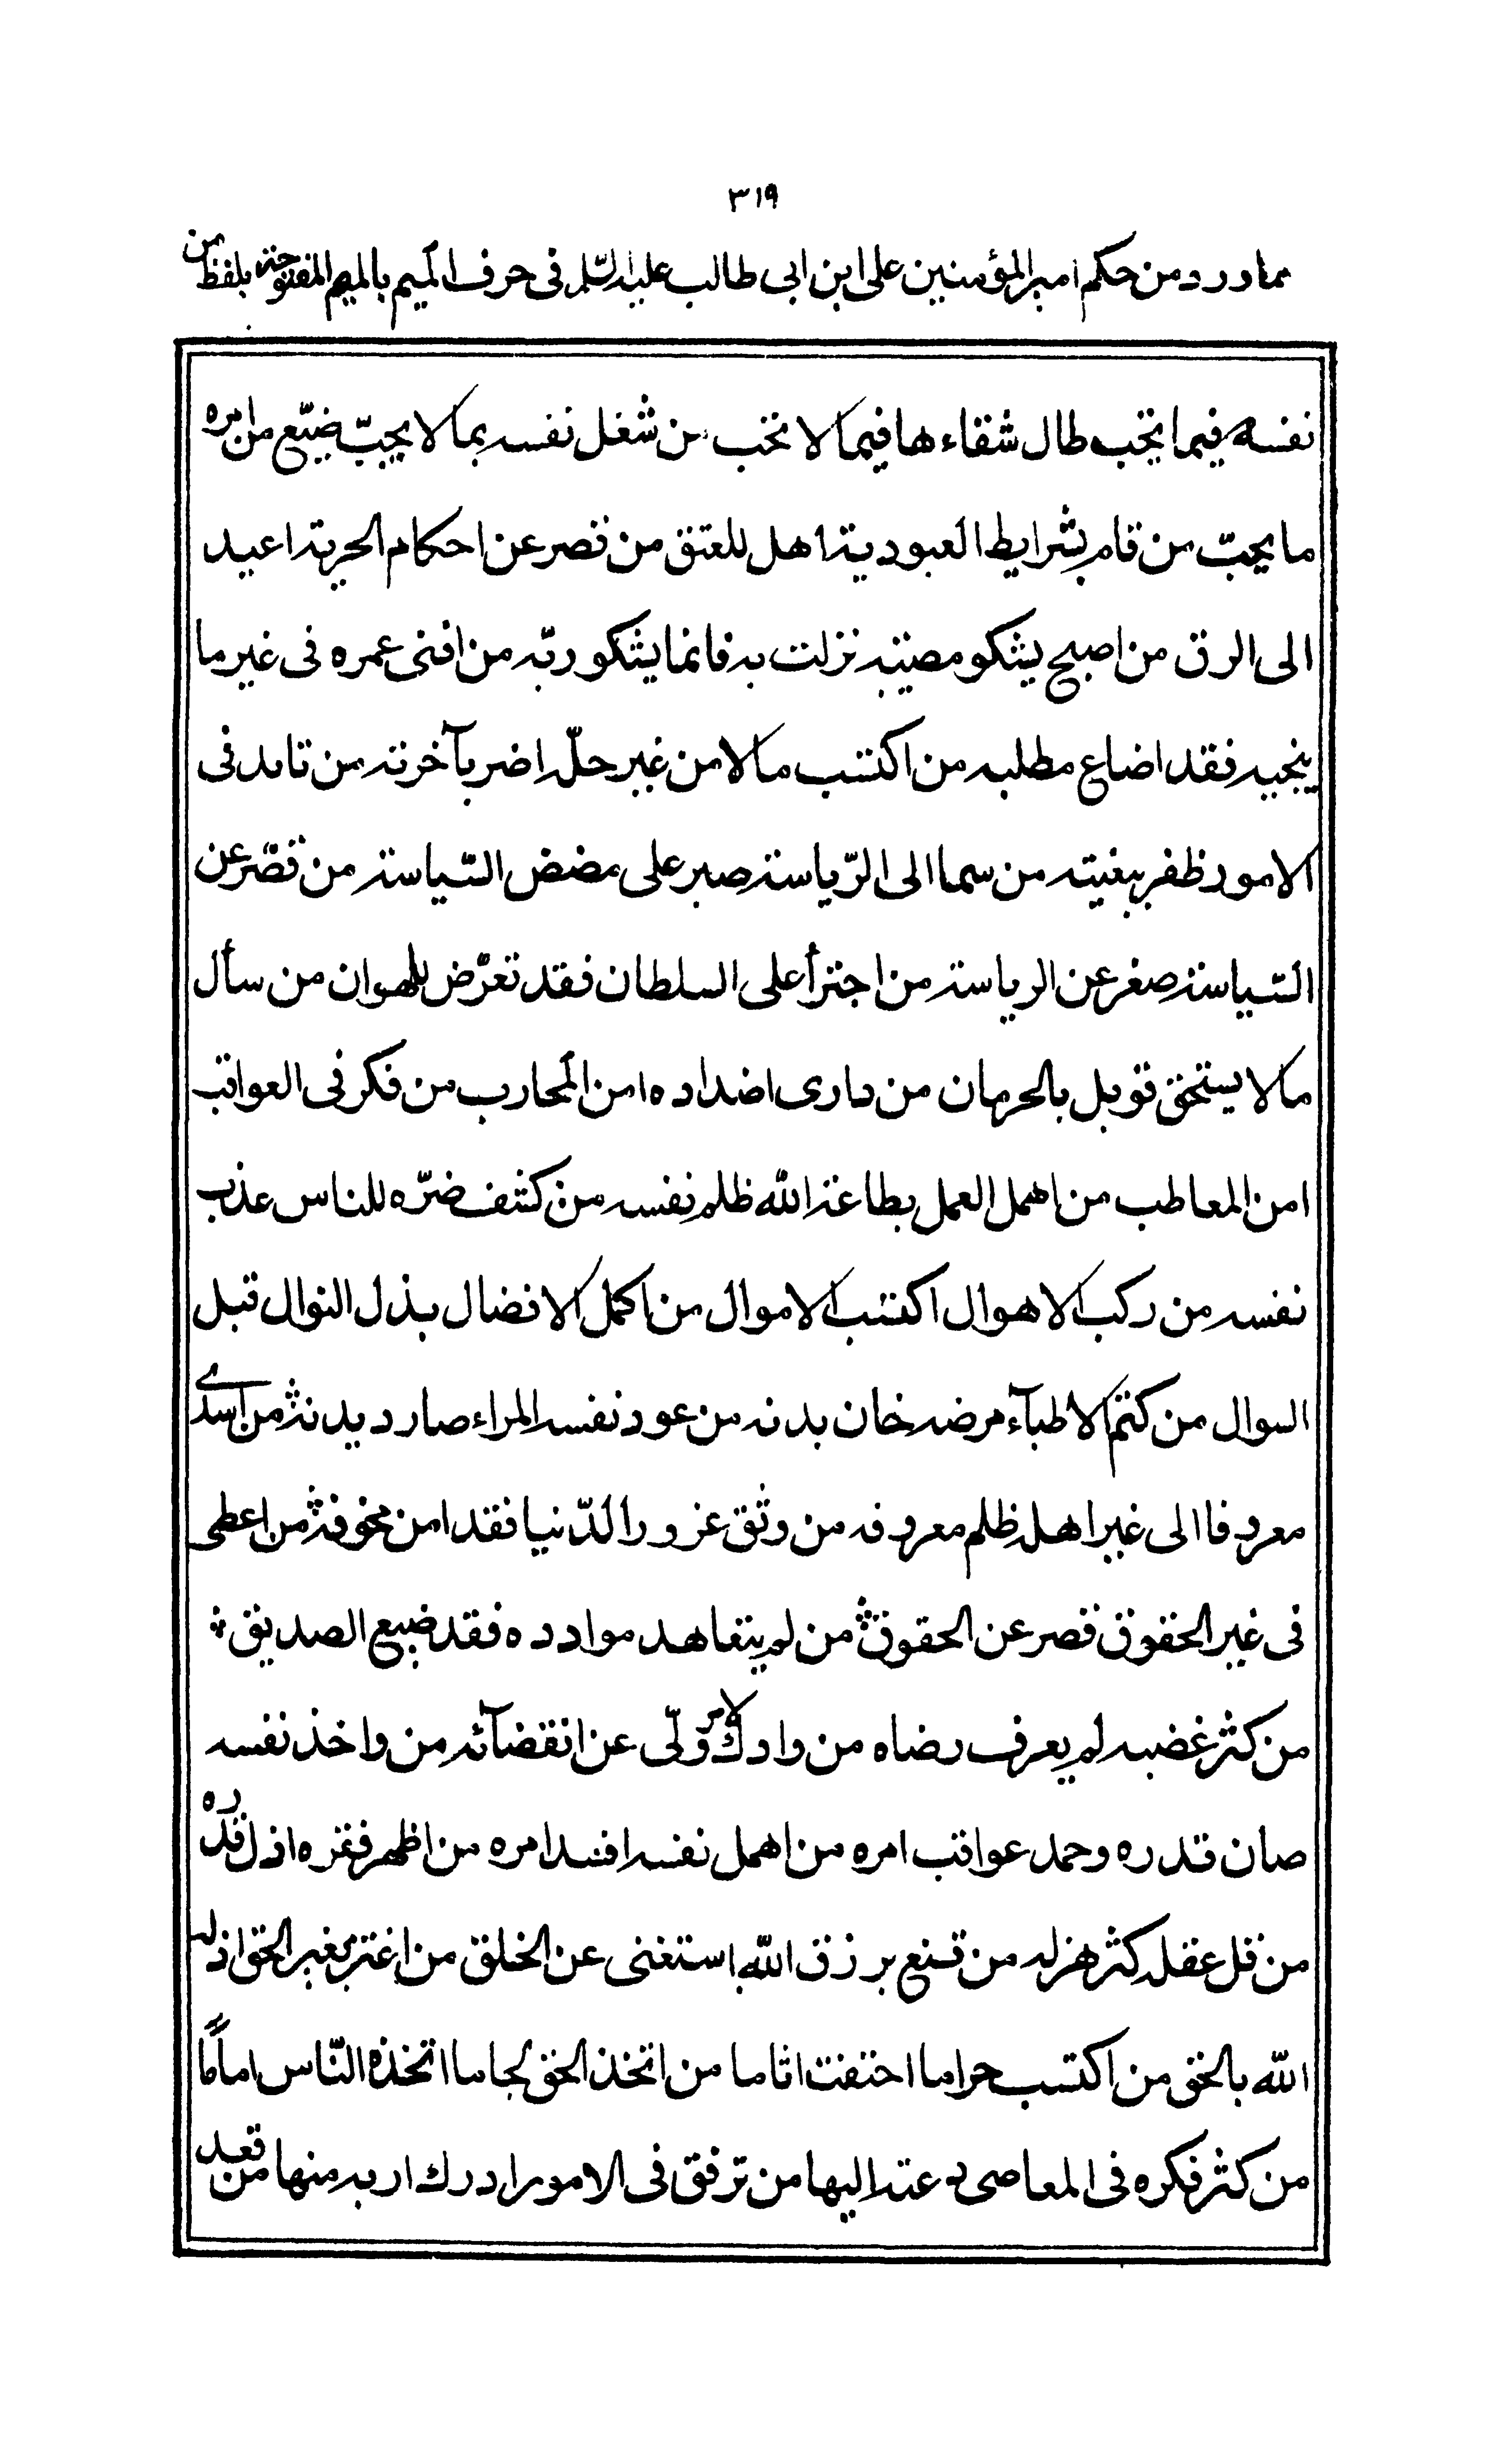 ٣١٩
مما ورد من حكم امير المؤمنين على ابن ابى طالب عليه السّلم فى حرف الميم بالميم المفتوحة بلفظ من
نفسه فيما تحب طال شقاءها فيما لا تحب من شغل نفسه بما لا يجبّ ضيّع من امره
ما يجبّ من قام بشرايط العبودية اهل للعتق من قصر عن احكام الحرية اعيد
الى الرق من اصبح يشكو مصيبه نزلت به فانما يشكو ربّه من افنى عمره فى غير ما
ينجيه فقد اضاع مطلبه من اكتسب مالا من غير حلّه اضر بآخرته من تايد فى
الامور ظفر ببغيته من سما الى الرّياسة صبر على مضض السّياسة من قصّر عن
السّياسة صغر عن الرياسة من اجترأ على السلطان فقد تعرّض للهوان من سأل
ما لا يستحق قوبل بالحرمان من دارى اضداده امن المحارب من فكر فى العواقب
امن المعاطب من اهمل العمل بطاعة الله ظلم نفسه من كشف ضرّه للناس عذب
نفسه من ركب الاهوال اكتسب الاموال من اكمل الافضال بذل النوال قبل
السوال من كتم الاطبآء مرضه خان بدنه من عود نفسه المراء صار ديدنه من اسدى
معروفا الى غير اهله ظلم معروفه من وثق غرور الدّنيا فقد امن مخوفة من اعطى
فى غير الحقوق قصر عن الحقوق من لم يتعاهد موادده فقد ضيع الصديق
من كثر غضبه لم يعرف رضاه من وادك لامر ولّى عن انقضآئه من واخذ نفسه
صان قدره وحمد عواقب امره من اهمل نفسه افسد امره من اظهر فقره اذل قدره
من قل عقله كثر هزله من قنع برزق الله استغنى عن الخلق من اغتر بغير الحق اذله
الله بالحق من اكتسب حراما احتقب اثاما من اتخذ الحق لجاما اتخذه النّاس اماماً
من كثر فكره فى المعاصى دعته اليها من ترفق فى الامور ادرك اربه منها من قعد